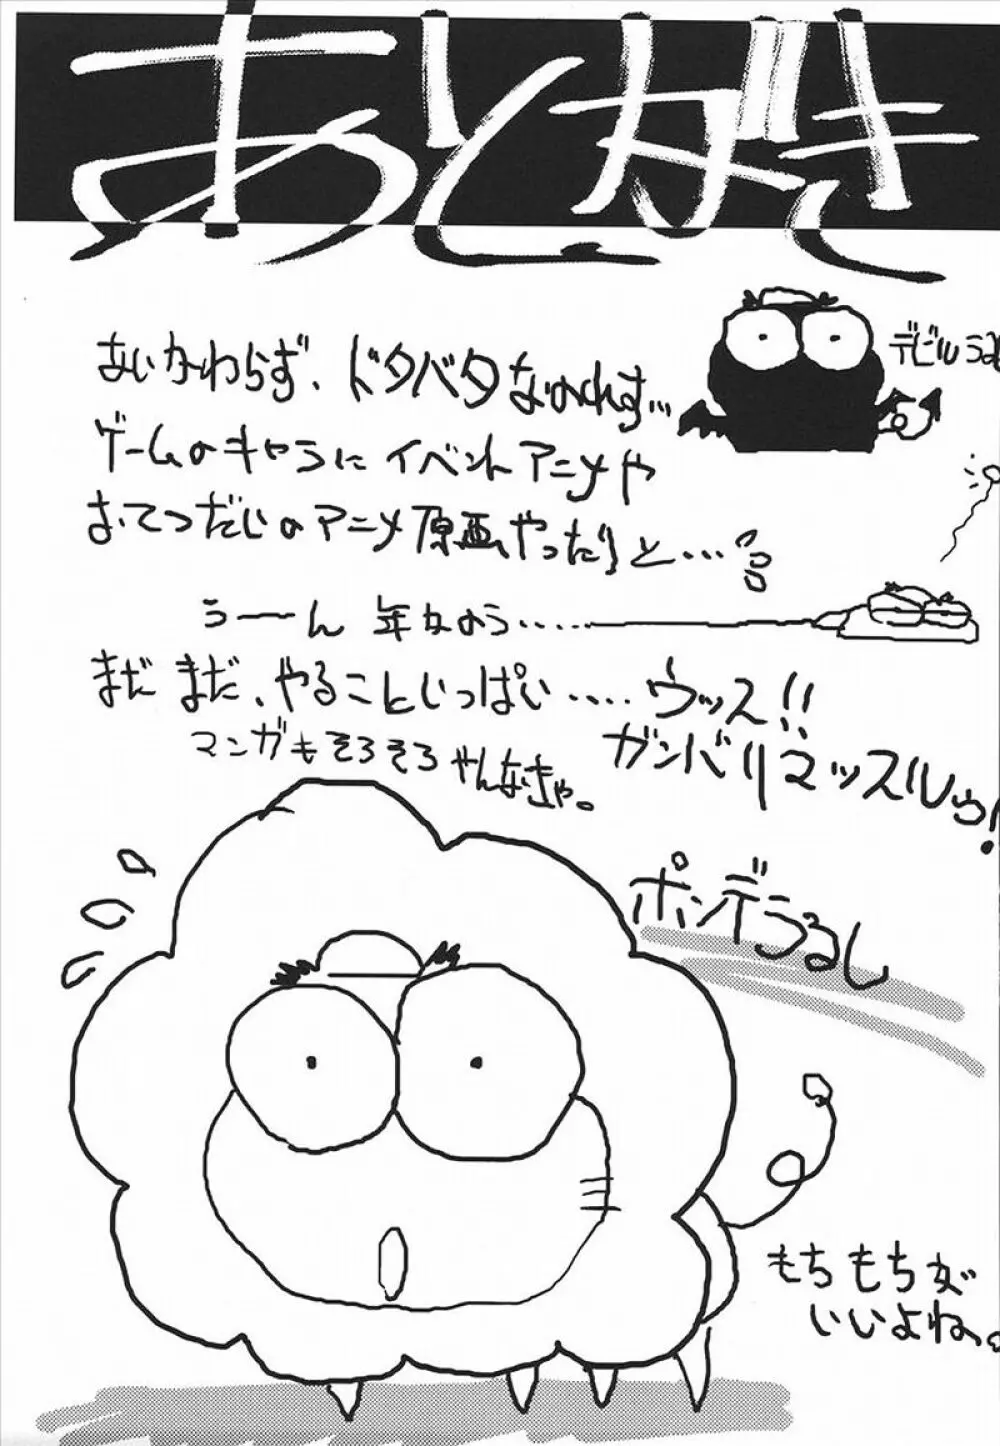 あとがき
あいかわらず、ドタバタなのれす…
デビルうる
ゲームのキャラにイベントアニメや
おてつだいのアニメ原画やったりと…
うーーん 年かのう……
まだまだ、やることといっぱい…‥ ウッス!!
ガンバリマッスルゥ!
マンガもそろそろやんなきゃ。
ポンデうるし
もちもちが
いいよね。